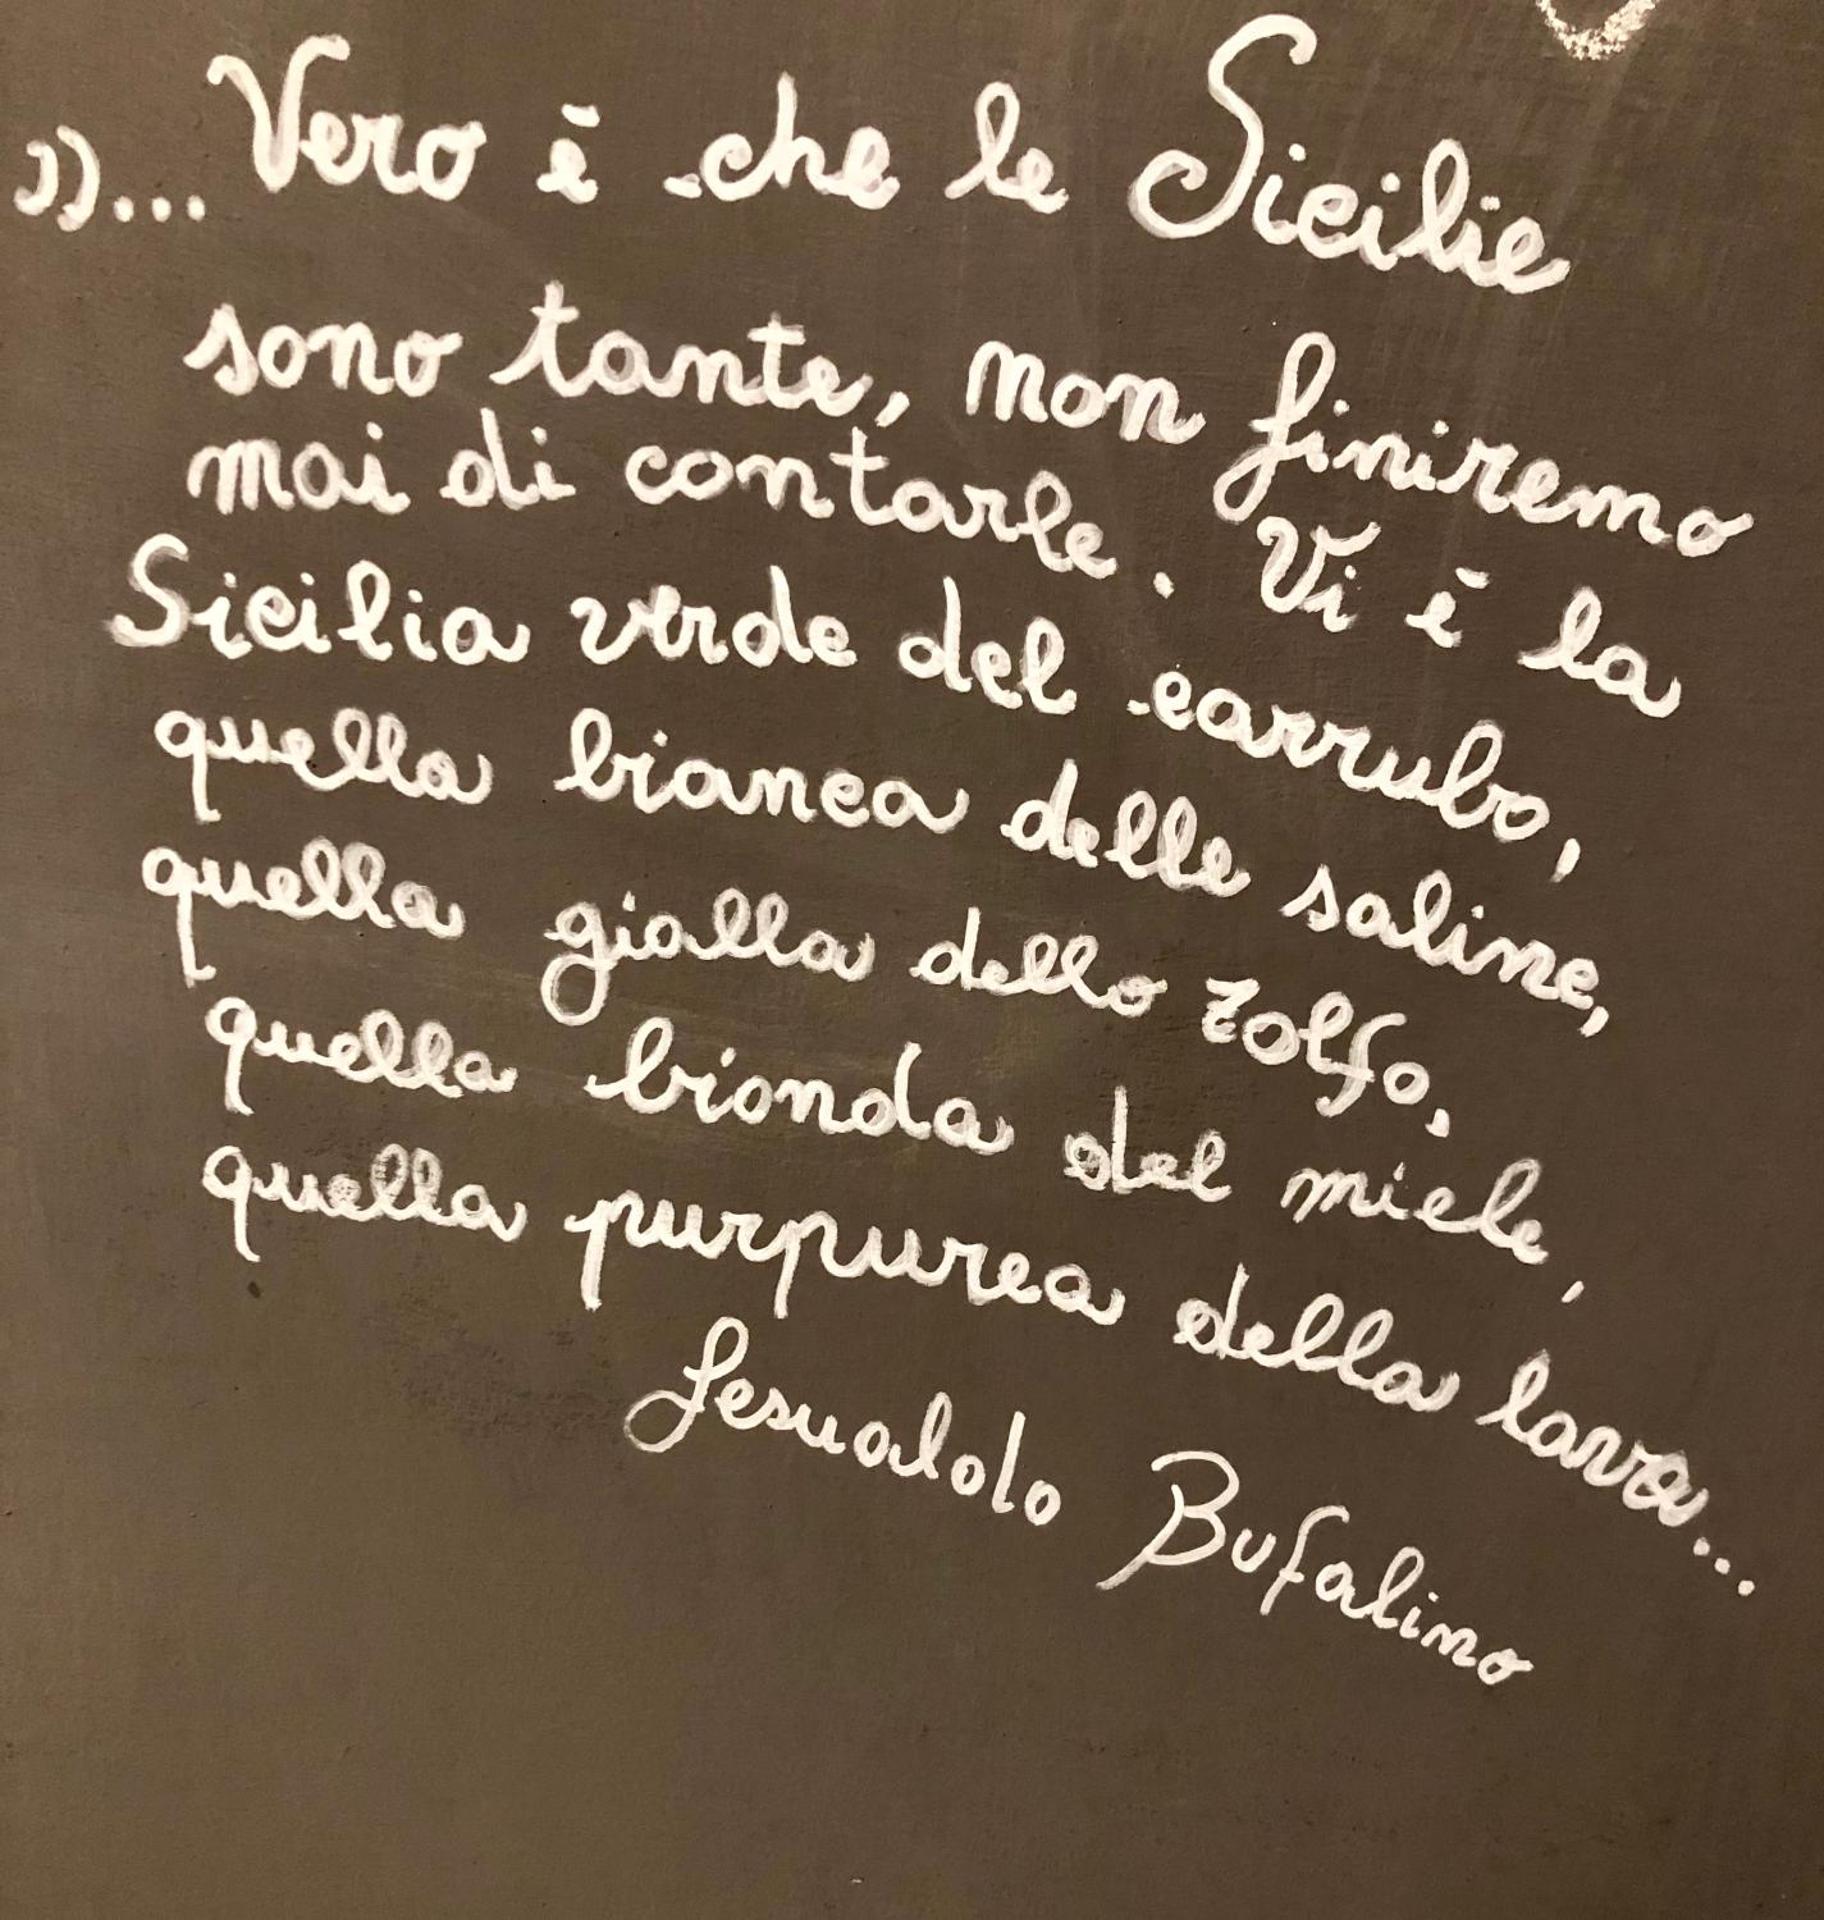 "... Vero è che le Sicilie
sono tante, non finiremo
mai di contarle. Vi è la
Sicilia verde del carrubo,
quella bianca delle saline,
quella gialla dello zolfo,
quella bionda del miele,
quella purpurea della lava...
Gesualdo Bufalino